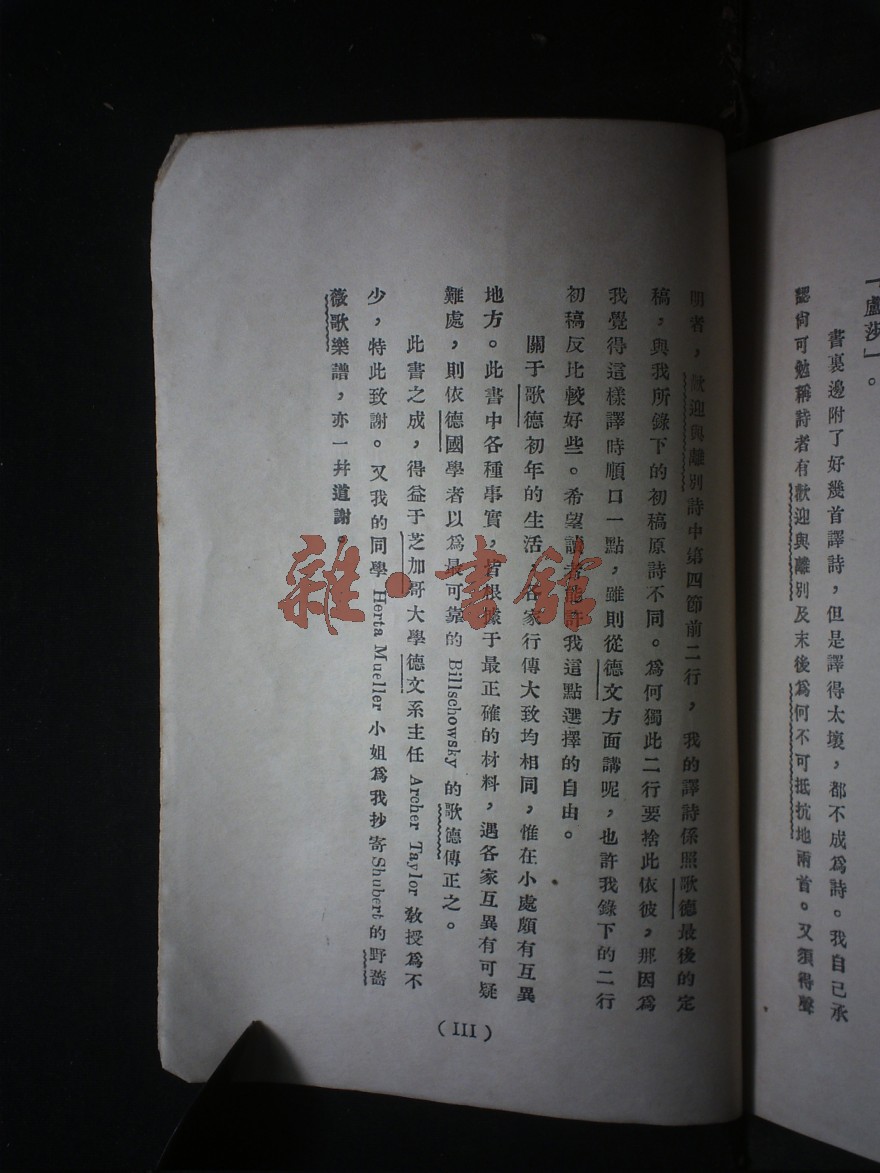 「盧莎」。
書裏邊附了好幾首譯詩，但是譯得太壞，都不成爲詩。我自己承
認尙可勉稱詩者有歡迎與離別及末後爲何不可抵抗地兩首。又須得聲
明者，歡迎與離別詩中第四節前二行，我的譯詩係照歌德最後的定
稿，與我所錄下的初稿原詩不同。爲何獨此二行要捨此依彼，那因爲
我覺得這樣譯時順口一點，雖則從德文方面講呢，也許我錄下的二行
初稿反比較好些。希望讀者能許我這點選擇的自由。
關于歌德初年的生活，各家行傳大致均相同，惟在小處頗有互異
地方。此書中各種事實，皆根據于最正確的材料，遇各家互異有可疑
難處，則依德國學者以爲最可靠的 Billschowsky 的歌德傳正之。
此書之成，得益于芝加哥大學德文系主任 Archer Taylor 敎授爲不
少，特此致謝。又我的同學 Herta Mueller 小姐爲我抄寄Shubert的野薔
薇歌樂譜，亦一幷道謝。
(III)
雜·書館